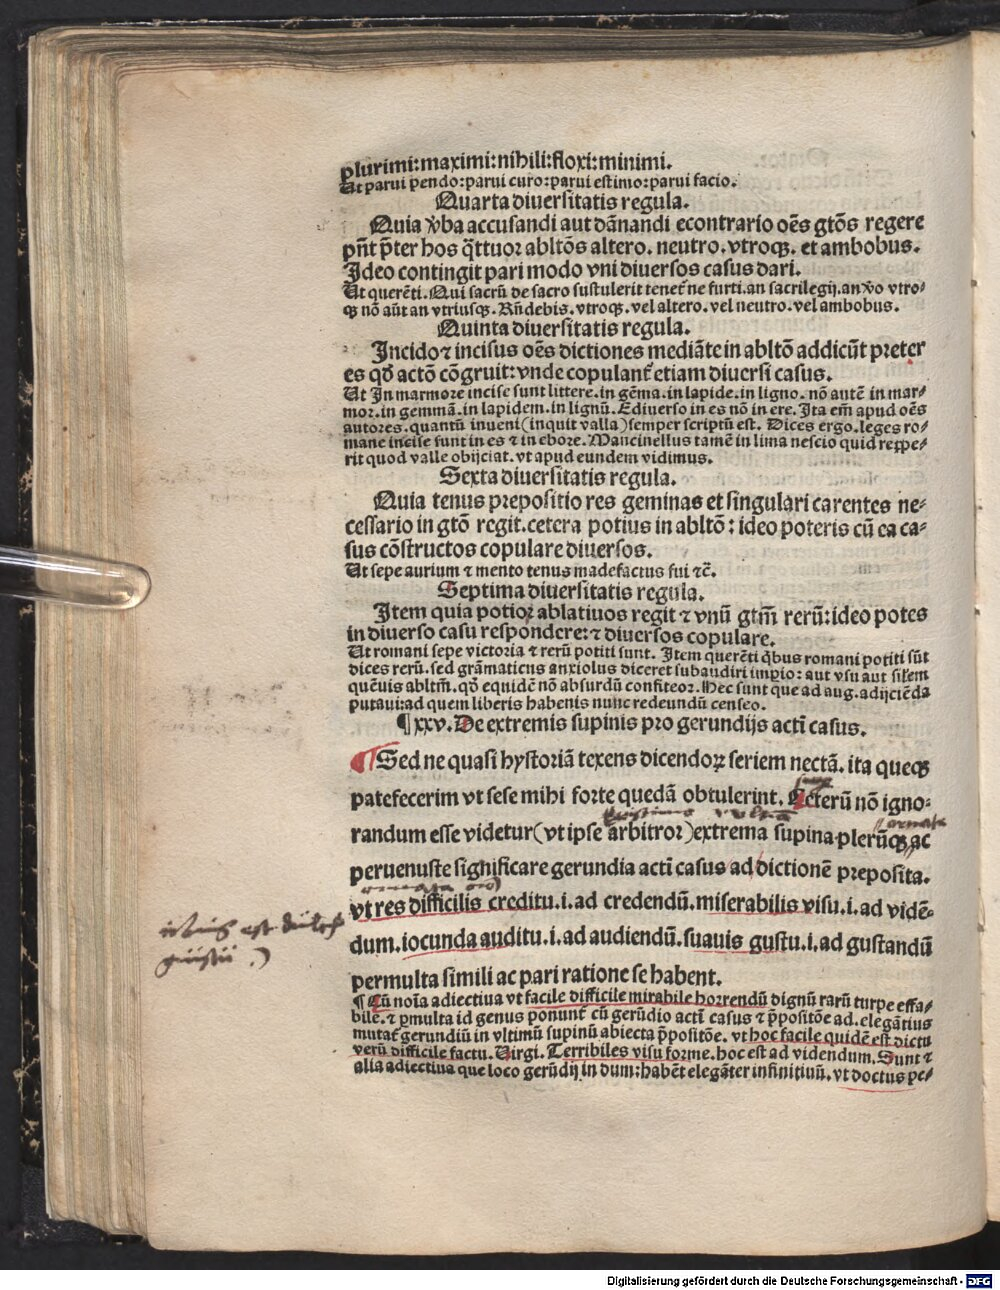 plurimi:maximi:nihili:floxi:minimi.
Ut parui pendo:parui curo:parui estimo:parui facio.
Quarta diuersitatis regula.
Quia v̕ba accusandi aut dãnandi econtrario oẽs gtõs regere
pñt p̃ter hos q̃ttuor abltõs altero. neutro. vtroqꝫ. et ambobus.
Ideo contingit pari modo vni diuersos casus dari.
Ut querẽti. Qui sacrũ de sacro sustulerit tenet̃ ne furti. an sacrilegij. an v̕o vtro⸗
qꝫ nõ aũt an vtriusqꝫ. Rñdebis. vtroqꝫ. vel altero. vel neutro. vel ambobus.
Quinta diuersitatis regula.
Incido ⁊ incisus oẽs dictiones mediãte in abltõ addicũt preter
es qđ actõ cõgruit: vnde copulant̃ etiam diuersi casus.
Ut In marmore incise sunt littere. in gẽma. in lapide. in ligno. nõ autẽ in mar⸗
mor. in gemmã. in lapidem. in lignũ. Ediuerso in es nõ in ere. Ita em̃ apud oẽs
autores. quantũ inueni (inquit valla) semper scriptũ est. Dices ergo. leges ro⸗
mane incise sunt in es ⁊ in ebore. Mancinellus tamẽ in lima nescio quid reppe⸗
rit quod valle obijciat. vt apud eundem vidimus.
Sexta diuersitatis regula.
Quia tenus prepositio res geminas et singulari carentes ne⸗
cessario in gtõ regit. cetera potius in abltõ: ideo poteris cũ ea ca⸗
sus cõstructos copulare diuersos.
Ut sepe aurium ⁊ mento tenus madefactus fui ⁊c̃.
Septima diuersitatis regula.
Item quia potior ablatiuos regit ⁊ vnũ gtm̃ rerũ: ideo potes
in diuerso casu respondere: ⁊ diuersos copulare.
Ut romani sepe victoria ⁊ rerũ potiti sunt. Item querẽti q̃bus romani potiti sũt
dices rerũ. sed grãmaticus anxiolus diceret subaudiri imperio: aut vsu aut silem
quẽuis abltm̃. qđ equidẽ nõ absurdũ confiteor. Hec sunt que ad aug. adijciẽda
putaui: ad quem liberis habenis nunc redeundũ censeo.
¶ xxv. De extremis supinis pro gerundijs acti casus.
¶ Sed ne quasi hystoriã texens dicendoꝝ seriem nectã. ita queqꝫ
patefecerim vt sese mihi forte quedã obtulerint. Ceterũ nõ igno⸗
randum esse videtur (vt ipse arbitror) extrema supina plerũqꝫ ac
peruenuste significare gerundia acti casus ad dictionẽ preposita.
vt res difficilis creditu. i. ad credendũ. miserabilis visu. i. ad vidẽ⸗
dum. iocunda auditu. i. ad audiendũ. suauis gustu. i. ad gustandũ
permulta simili ac pari ratione se habent.
¶ Cũ noĩa adiectiua vt facile difficile mirabile horrendũ dignũ rarũ turpe effa⸗
bile. ⁊ ꝑmulta id genus ponunt̃ cũ gerũdio acti casus ⁊ p̃positõe ad. elegãtius
mutat̃ gerundiũ in vltimũ supinũ abiecta p̃positõe. vt hoc facile quidẽ est dictu
verũ difficile factu. Virgi. Terribiles visu forme. hoc est ad videndum. Sunt ⁊
alia adiectiua que loco gerũdij in dum: habẽt elegãter infinitiuũ. vt doctus pe⸗
Digitalisierung gefördert durch die Deutsche Forschungsgemeinschaft - DFG